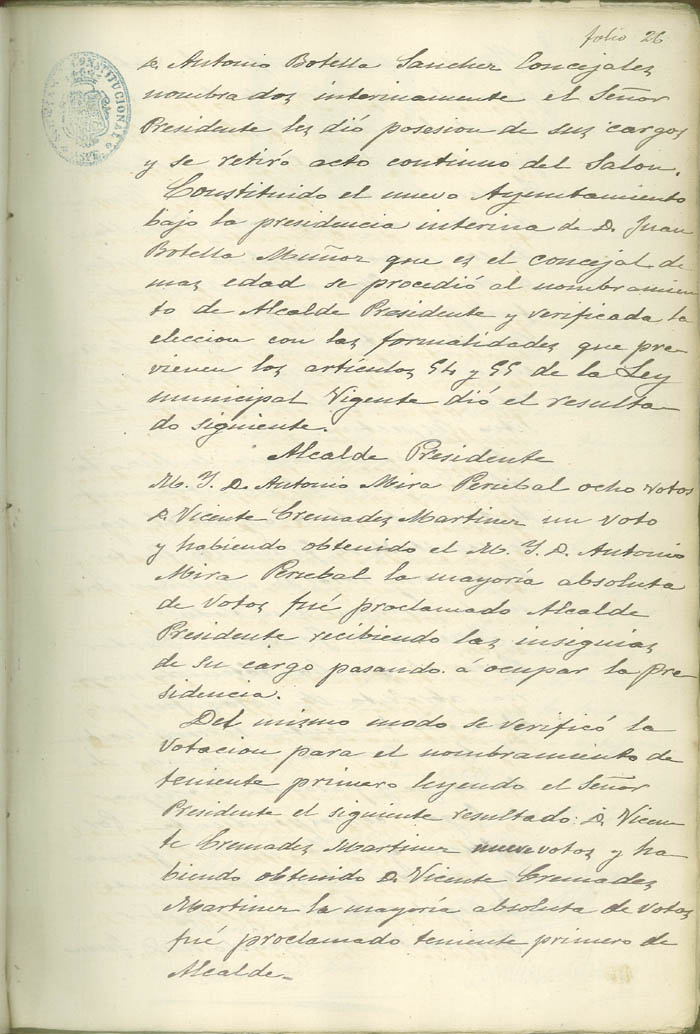 folio 26
D. Antonio Botella Sanchez Concejales
nombrados interinamente el Señor
Presidente les dió posesion de sus cargos
y se retiró acto continuo del Salon.
Constituido el nuevo Ayuntamiento
bajo la presidencia interina de D. Juan
Botella Muñoz que es el concejal de
mas edad se procedió al nombramien
to de Alcalde Presidente y verificada la
eleccion con las formalidades que pre-
vienen los artículos 54 y 55 de la Ley
municipal Vigente dió el resulta-
do siguiente.
Alcalde Presidente
M. Y. D. Antonio Mira Percebal ocho votos
D. Vicente Cremades Martinez un voto
y habiendo obtenido el M. Y. D. Antonio
Mira Percebal la mayoría absoluta
de votos fué proclamado Alcalde
Presidente recibiendo las insignias
de su cargo pasando á ocupar la pre-
sidencia.
Del mismo modo se verificó la
votacion para el nombramiento de
teniente primero leyendo el Señor
Presidente el siguiente resultado: D. Vicen
te Cremades Martinez nueve votos y ha-
biendo obtenido D. Vicente Cremades
Martinez la mayoría absoluta de votos
fué proclamado teniente primero de
Alcalde.
CONSTITUCIONAL